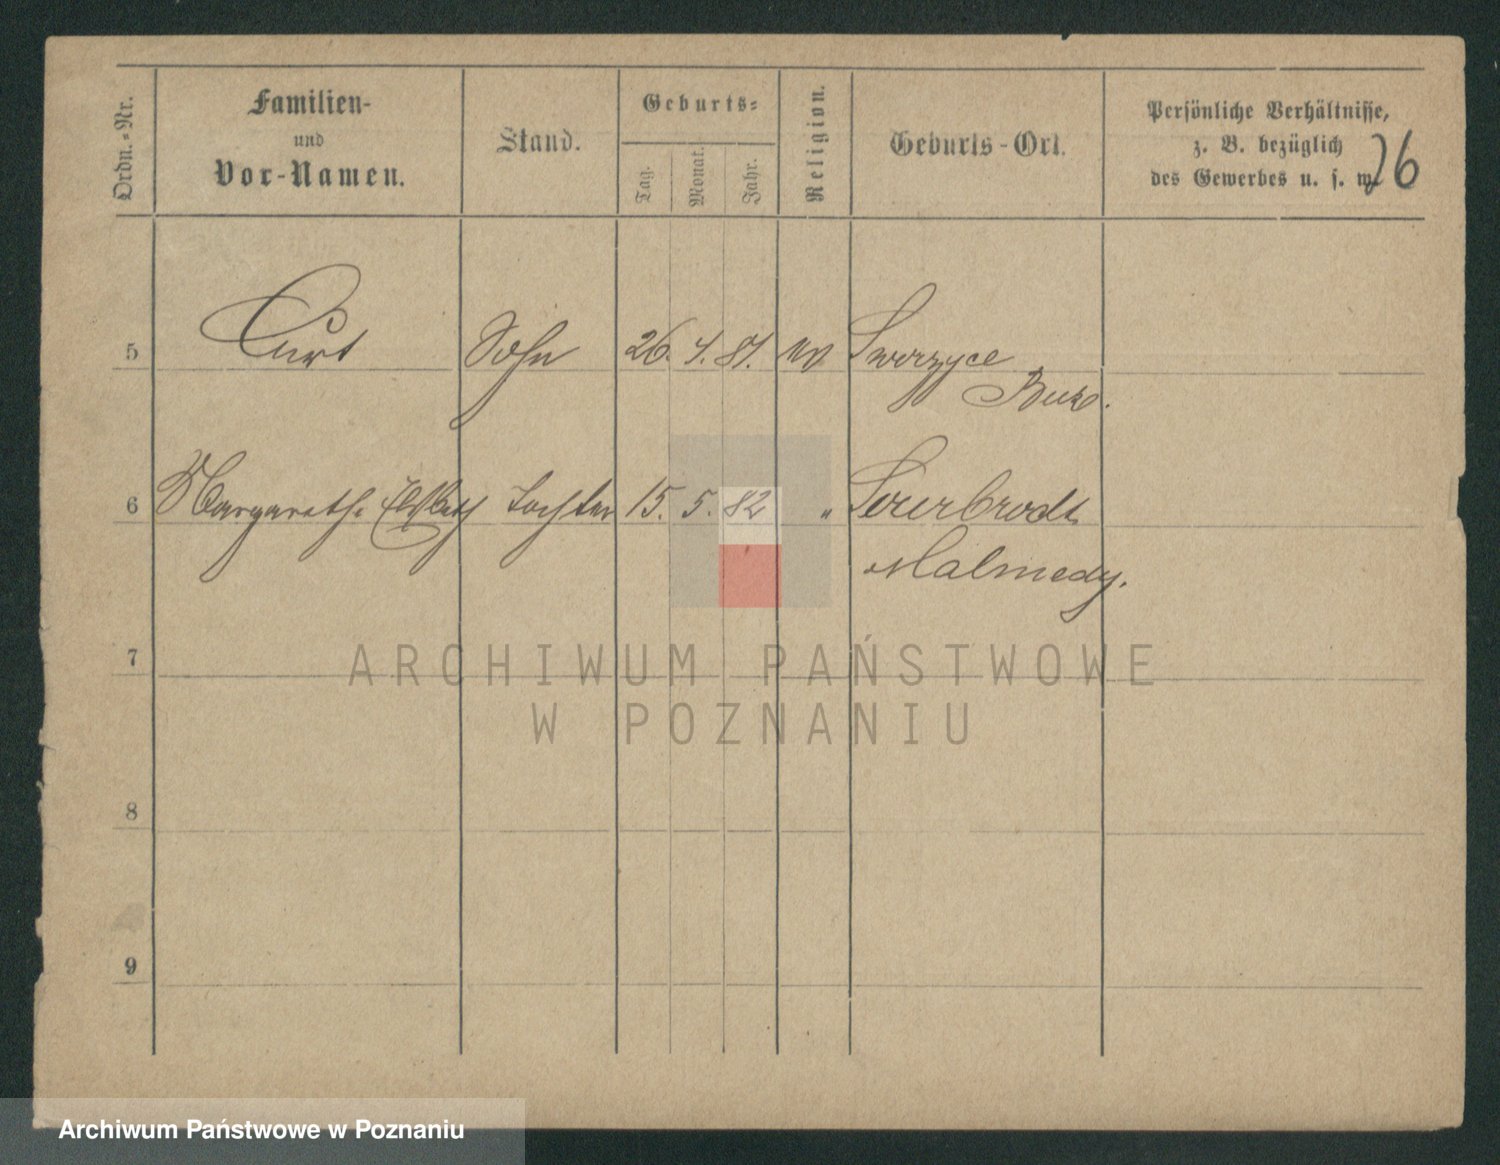 Ordn.-Nr.
Familien-
und
Vor-Namen.
Stand.
Geburts-
Tag.
Monat.
Jahr.
Religion.
Geburts-Ort.
Persönliche Verhältnisse,
z. B. bezüglich
des Gewerbes u. s. w.
26
5 Curt Sohn 26. 4. 81. ev Sworzyce
Buk.
6 Margarethe Elsbeth Tochter 15. 5. 82 " Sourbrodt
Malmedy.
7
ARCHIWUM PAŃSTWOWE
W POZNANIU
8
9
Archiwum Państwowe w Poznaniu